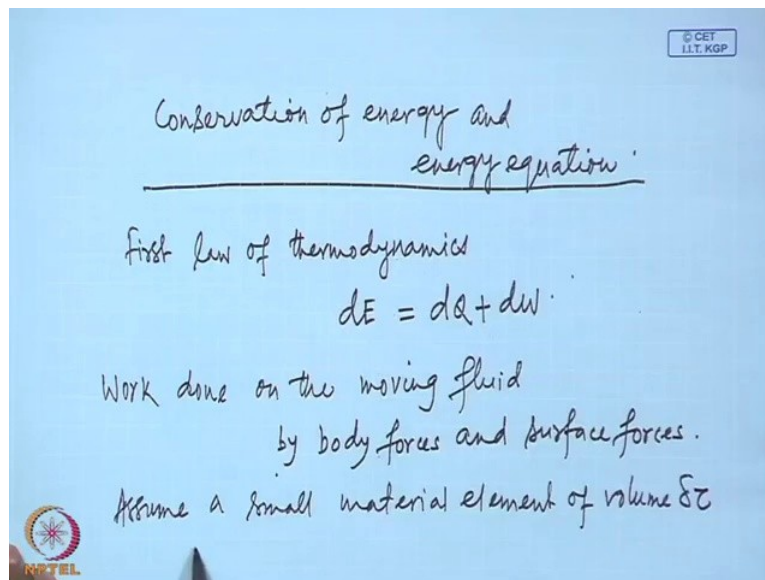 © CET
I.I.T. KGP
Conservation of energy and
energy equation.
First law of thermodynamics
dE = dQ + dW.
Work done on the moving fluid
by body forces and surface forces.
Assume a small material element of volume δτ
NPTEL